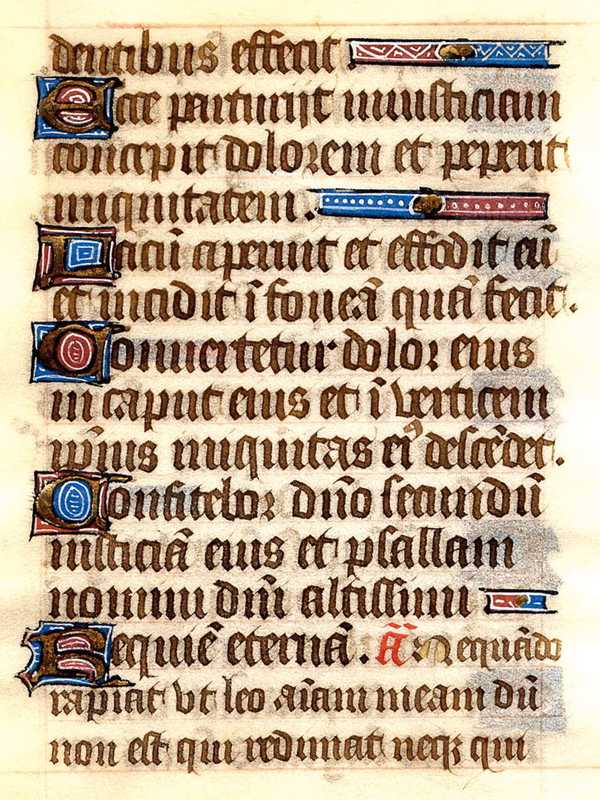 dentibus effecit
Ecce parturijt iniusticiam
concepit dolorem et peperit
iniquitatem .
Lacū aperuit et effodit eū
et incidit ī foueā quā fecit .
Conuertetur dolor eius
in caput eius et ī verticem
ip̄ius iniquitas ei⁹ descēdet .
Confitebor dn̄o secundū
iusticiā eius et psallam
nomini dn̄i altissimi
Requiē eternā . ā̄ Nequādo
rapiat vt leo aīam meam dū
non est qui redimat neqȝ qui